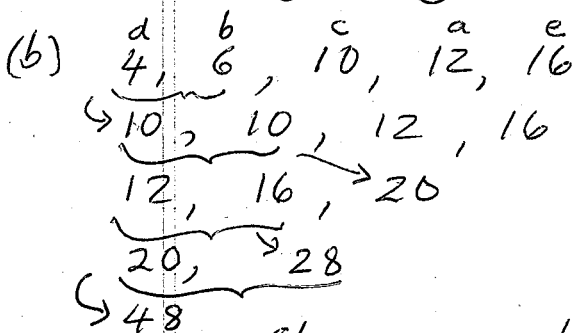 d b c a e
(b) 4, 6, 10, 12, 16
10, 10, 12, 16
12, 16, 20
20, 28
48